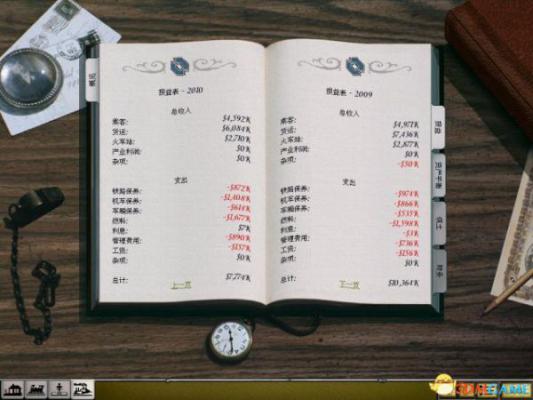 损益表 - 2010
总收入
乘客: $4,592K
货运: $6,084K
火车站: $2,710K
产业利润: $0K
杂项: $0K
支出
铁路保养: -$872K
机车保养: -$1,408K
车厢保养:
燃料: -$1,677K
利息: $7K
管理费用: -$890K
工资: -$157K
杂项: $0K
总计: $7,774K
上一页
损益表 - 2009
总收入
乘客: $4,971K
货运: $7,436K
火车站: $2,877K
产业利润: $0K
杂项: -$50K
支出
铁路保养: -$974K
机车保养: -$866K
车厢保养: -$535K
燃料: -$1,598K
利息: -$3K
管理费用: -$736K
工资: -$156K
杂项: $0K
总计: $10,364K
下一页
概览
损益
3DMGAME